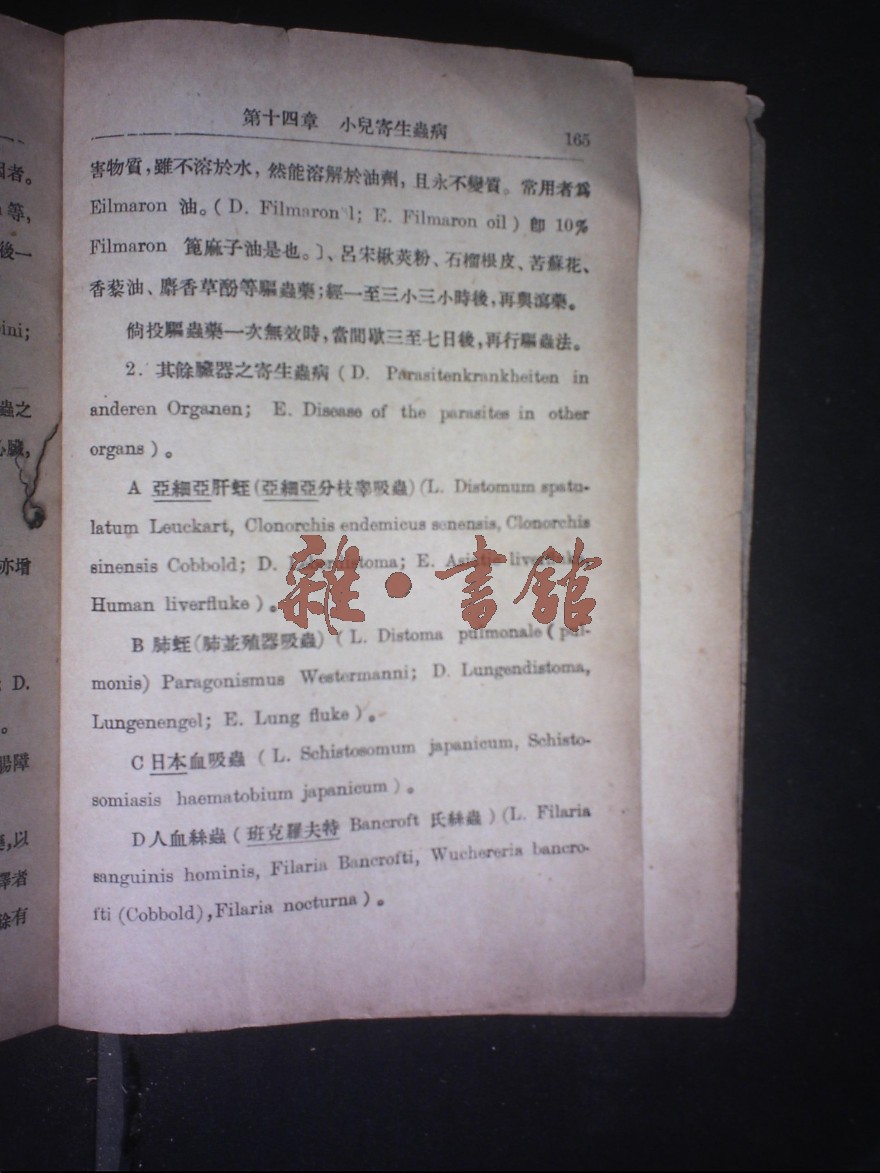 第十四章 小兒寄生蟲病 165
害物質,雖不溶於水,然能溶解於油劑,且永不變質。常用者爲
Eilmaron 油。( D. Filmaron l; E. Filmaron oil ) 卽 10%
Filmaron 篦麻子油是也。〕、呂宋楸莢粉、石榴根皮、苦蘇花、
香藜油、麝香草酚等驅蟲藥;經一至三小三小時後,再與瀉藥。
倘投驅蟲藥一次無效時,當間歇三至七日後,再行驅蟲法。
2. 其餘臟器之寄生蟲病 ( D. Parasitenkrankheiten in
anderen Organen; E. Disease of the parasites in other
organs )。
A 亞細亞肝蛭(亞細亞分枝睾吸蟲)(L. Distomum spatu-
latum Leuckart, Clonorchis endemicus senensis, Clonorchis
sinensis Cobbold; D. E. Asiatic liverfluke,
Human liverfluke )。
B 肺蛭(肺並殖器吸蟲) ( L. Distoma pulmonale ( pul-
monis) Paragonismus Westermanni; D. Lungendistoma,
Lungenengel; E. Lung fluke )。
C 日本血吸蟲 ( L. Schistosomum japanicum, Schisto-
somiasis haematobium japanicum )。
D 人血絲蟲 ( 班克羅夫特 Bancroft 氏絲蟲 ) (L. Filaria
sanguinis hominis, Filaria Bancrofti, Wuchereria bancro-
fti (Cobbold), Filaria nocturna )。
者。
等,
後一
ini;
蟲之
心臟,
亦增
; D.
。
腸障
,以
譯者
餘有
雜·書館